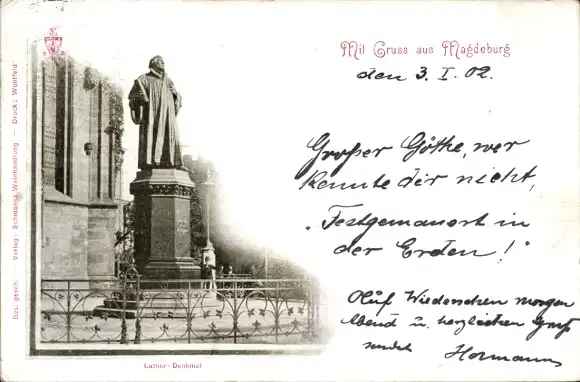 Mit Gruss aus Magdeburg
den 3. I. 02.
Großer Göthe, wer
kennte dir nicht,
"Festgemauort in
der Erden!"
Auf Wiedersehen morgen
Abend u. herzlichen Gruß
sendet Hermann
Luther-Denkmal
Ges. gesch. Verlag: Schmanns Weinhandlung — Druck: Wohlfeld